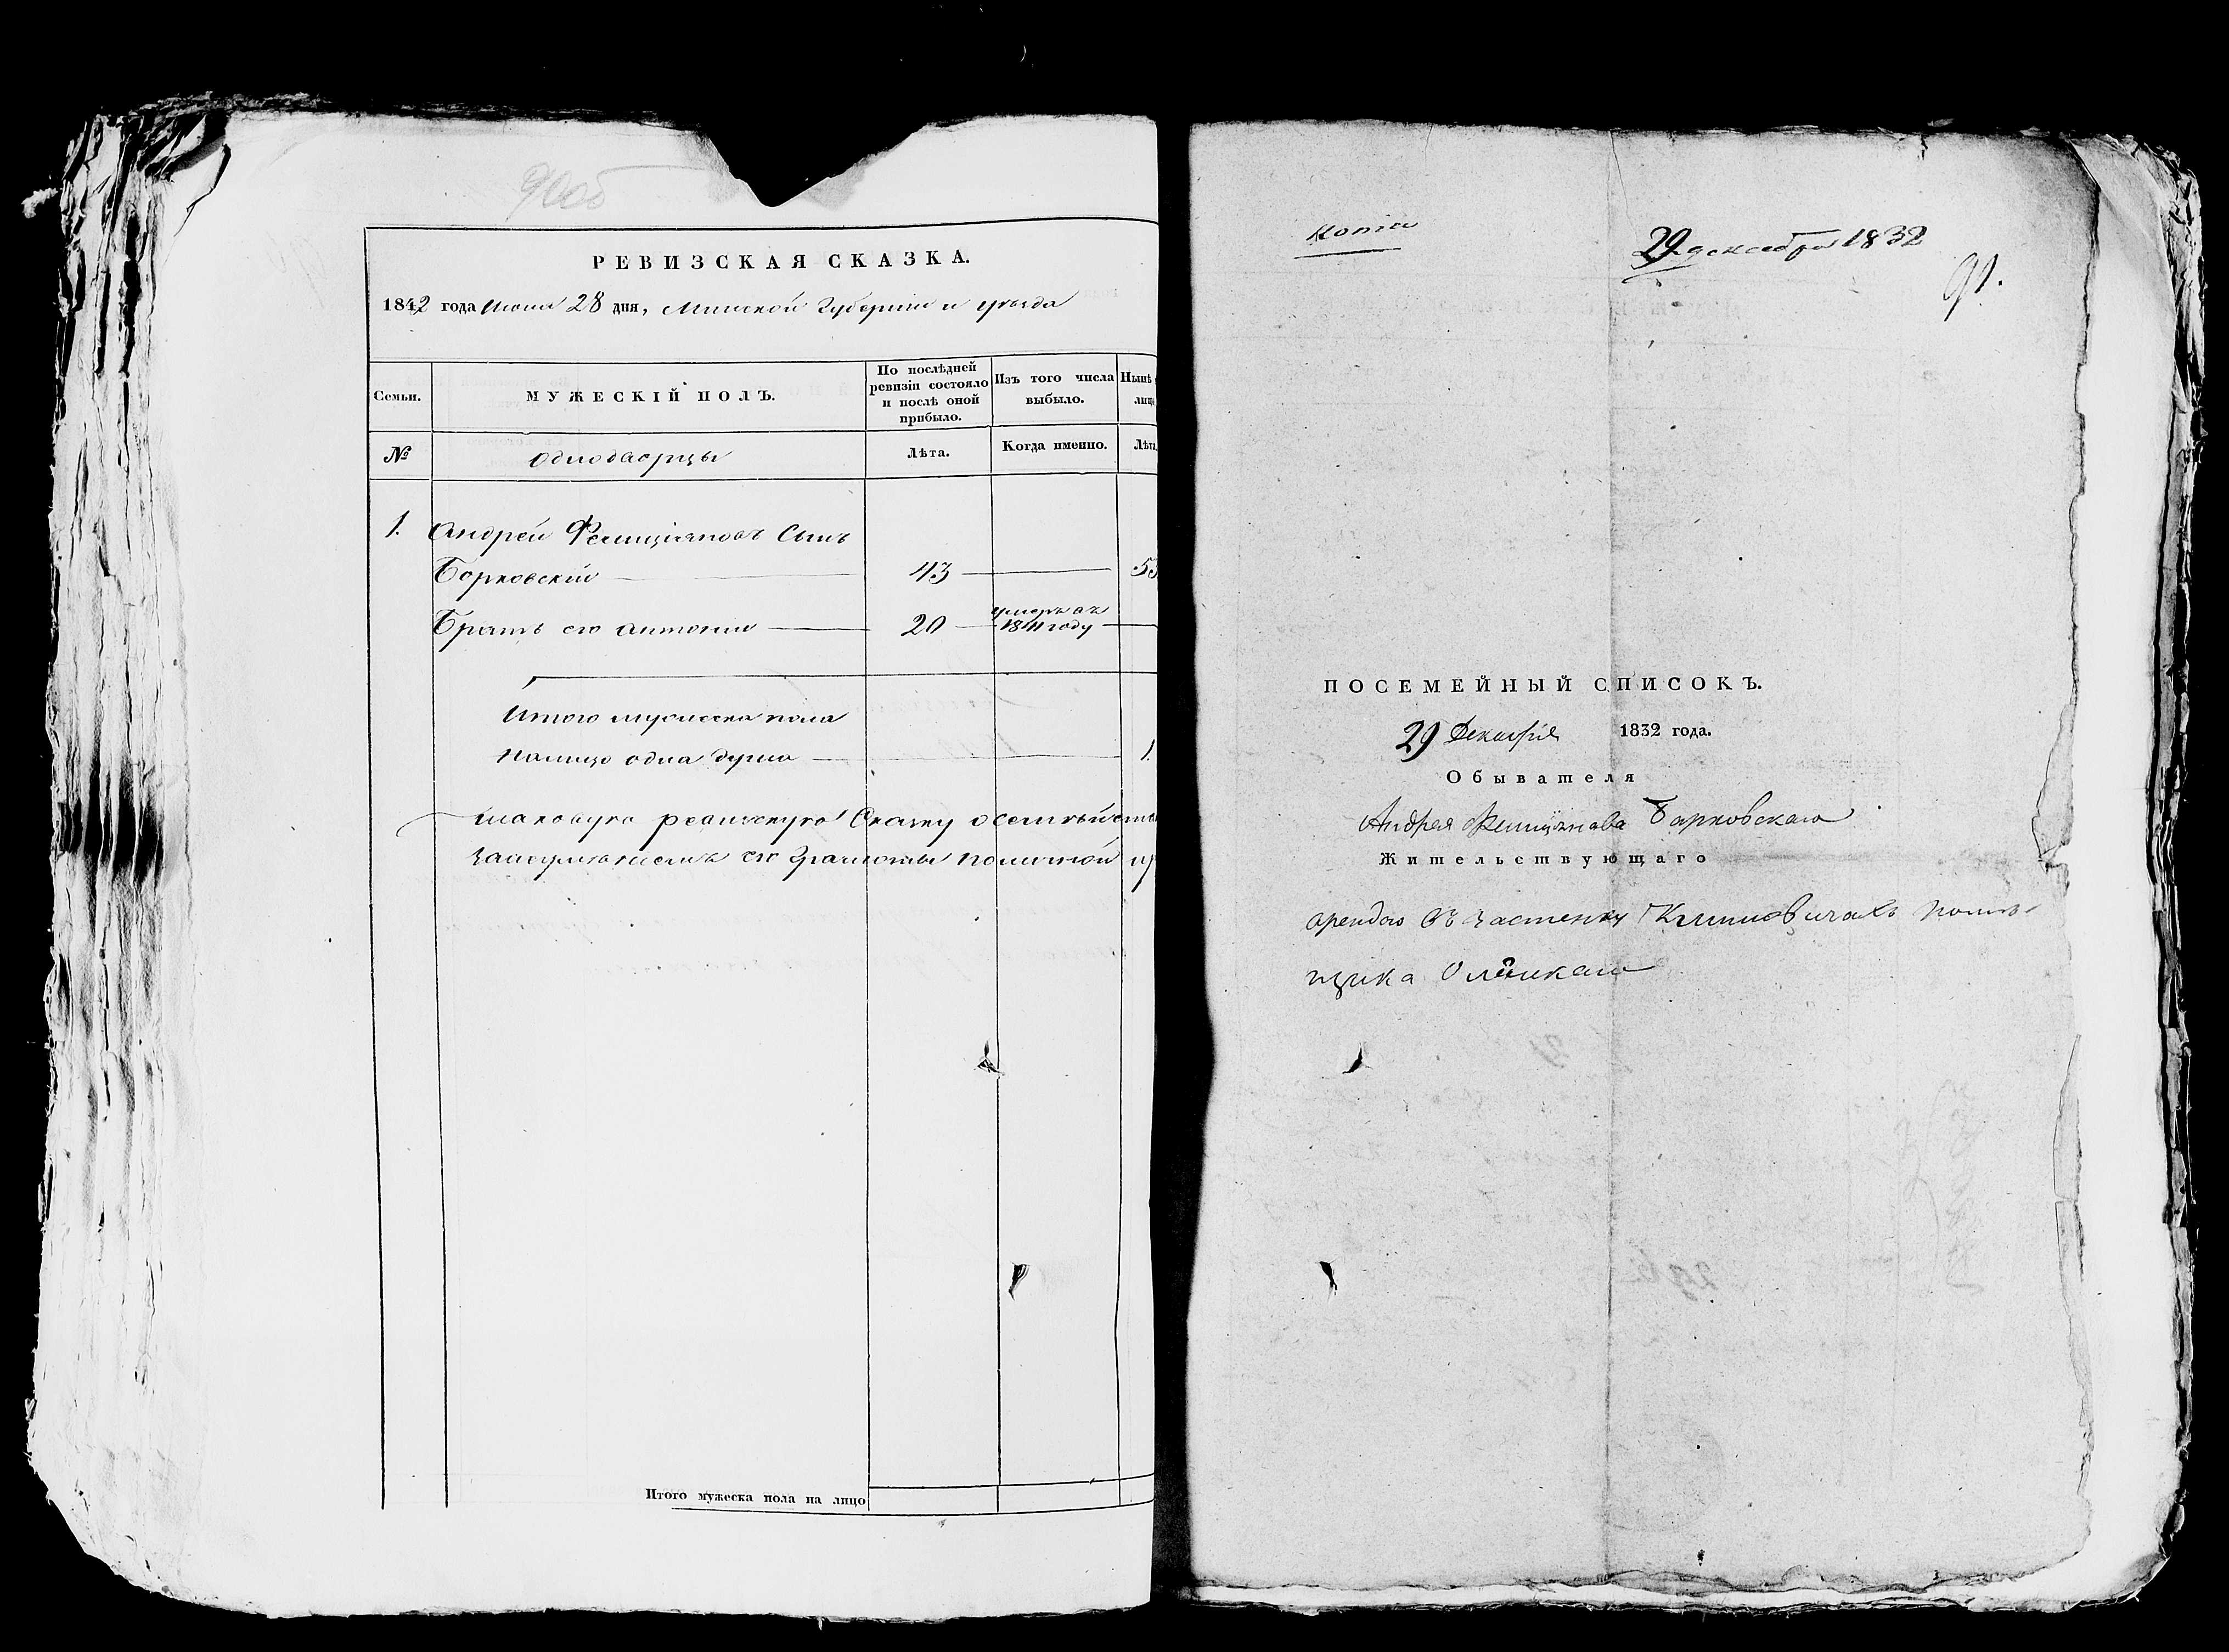 90об
РЕВИЗСКАЯ СКАЗКА.
1842 года Июня 28 дня, Минской Губернии и уезда
Семьи.
МУЖЕСКІЙ ПОЛЪ.
По послѣдней ревизіи состояло и послѣ оной прибыло.
Изъ того числа выбыло.
Нынѣ
лицо
№
Однодворцы
Лѣта.
Когда именно.
Лѣта
1. Андрей Фелиціяновъ Сынъ
Борковскій 43 53
Братъ его Антоній 20 умеръ въ 1841 году
Итого мужеска пола
налицо одна душа 1.
таковую ревизскую Сказку о семействе
его грамоты
Итого мужеска пола на лицо
Копія
29 декабря 1832
91.
ПОСЕМЕЙНЫЙ СПИСОКЪ.
29 Декабря 1832 года.
Обывателя
Андрея Фелиціянова Барковскаго
Жительствующаго
арендою въ застенку Климовичахъ поме-
щика